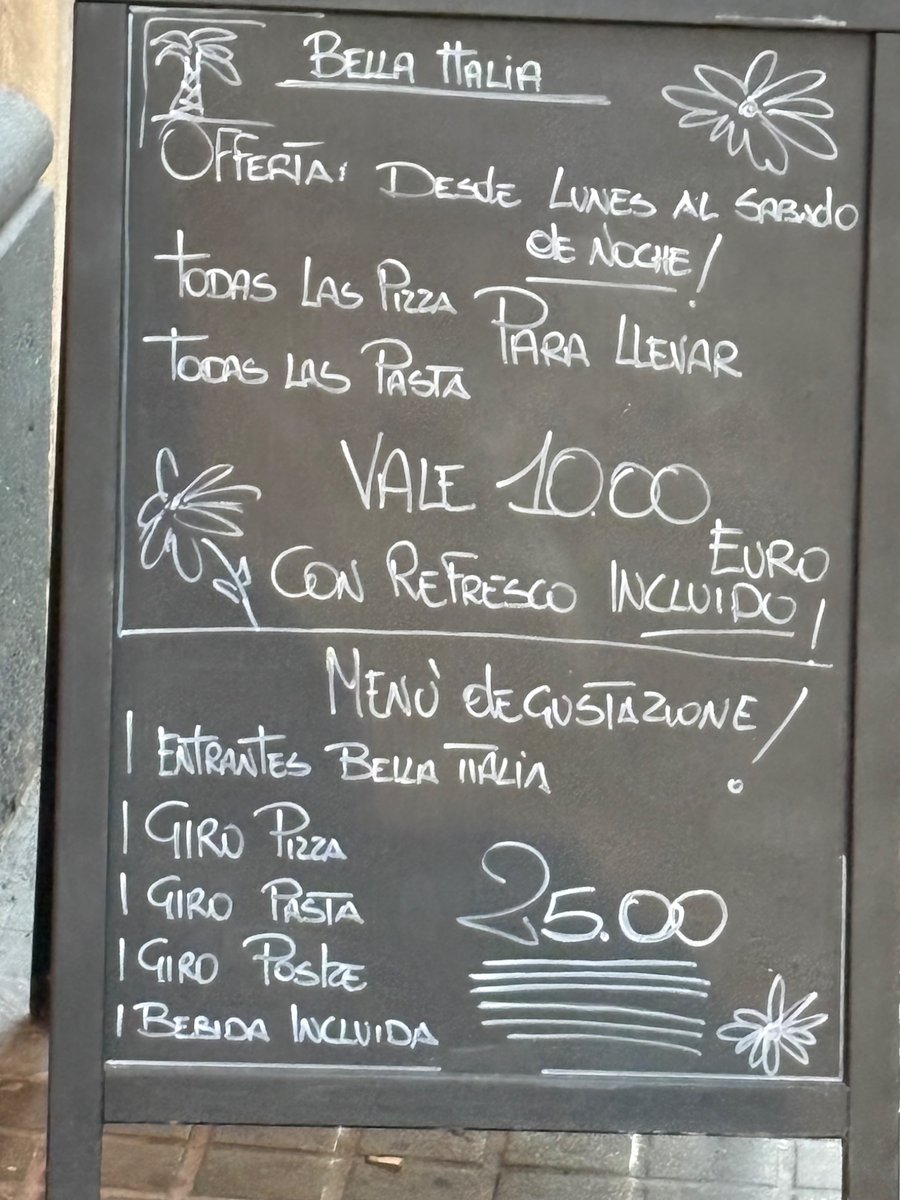 BELLA ITALIA
OFFERTA: DESDE LUNES AL SABADO
de NOCHE!
TODAS LAS PIZZA
PARA LLEVAR
TODAS LAS PASTA
VALE 10.00
EURO
CON REFRESCO INCLUIDO!
MENÙ deGUSTAZIONE!
1 ENTRANTES BELLA ITALIA
1 GIRO PIZZA
1 GIRO PASTA
25.00
1 GIRO POSTRE
1 BEBIDA INCLUIDA